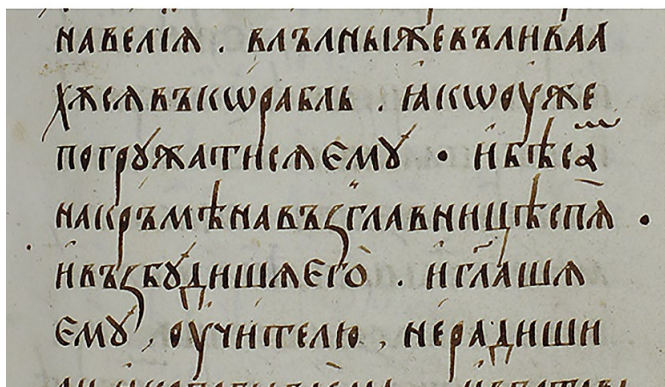 навелїѧ . влълныжевъливаа
хѫсѧвъкѡрабль . ꙗкѡоуже
погрꙋжатисѧємꙋ · ибѣса҃
накръмѣнавъꙁглавницѣспѧ ·
ивъꙁбꙋдишѧєго . игл҃ашѧ
ємꙋ , оучителю , нерадиши